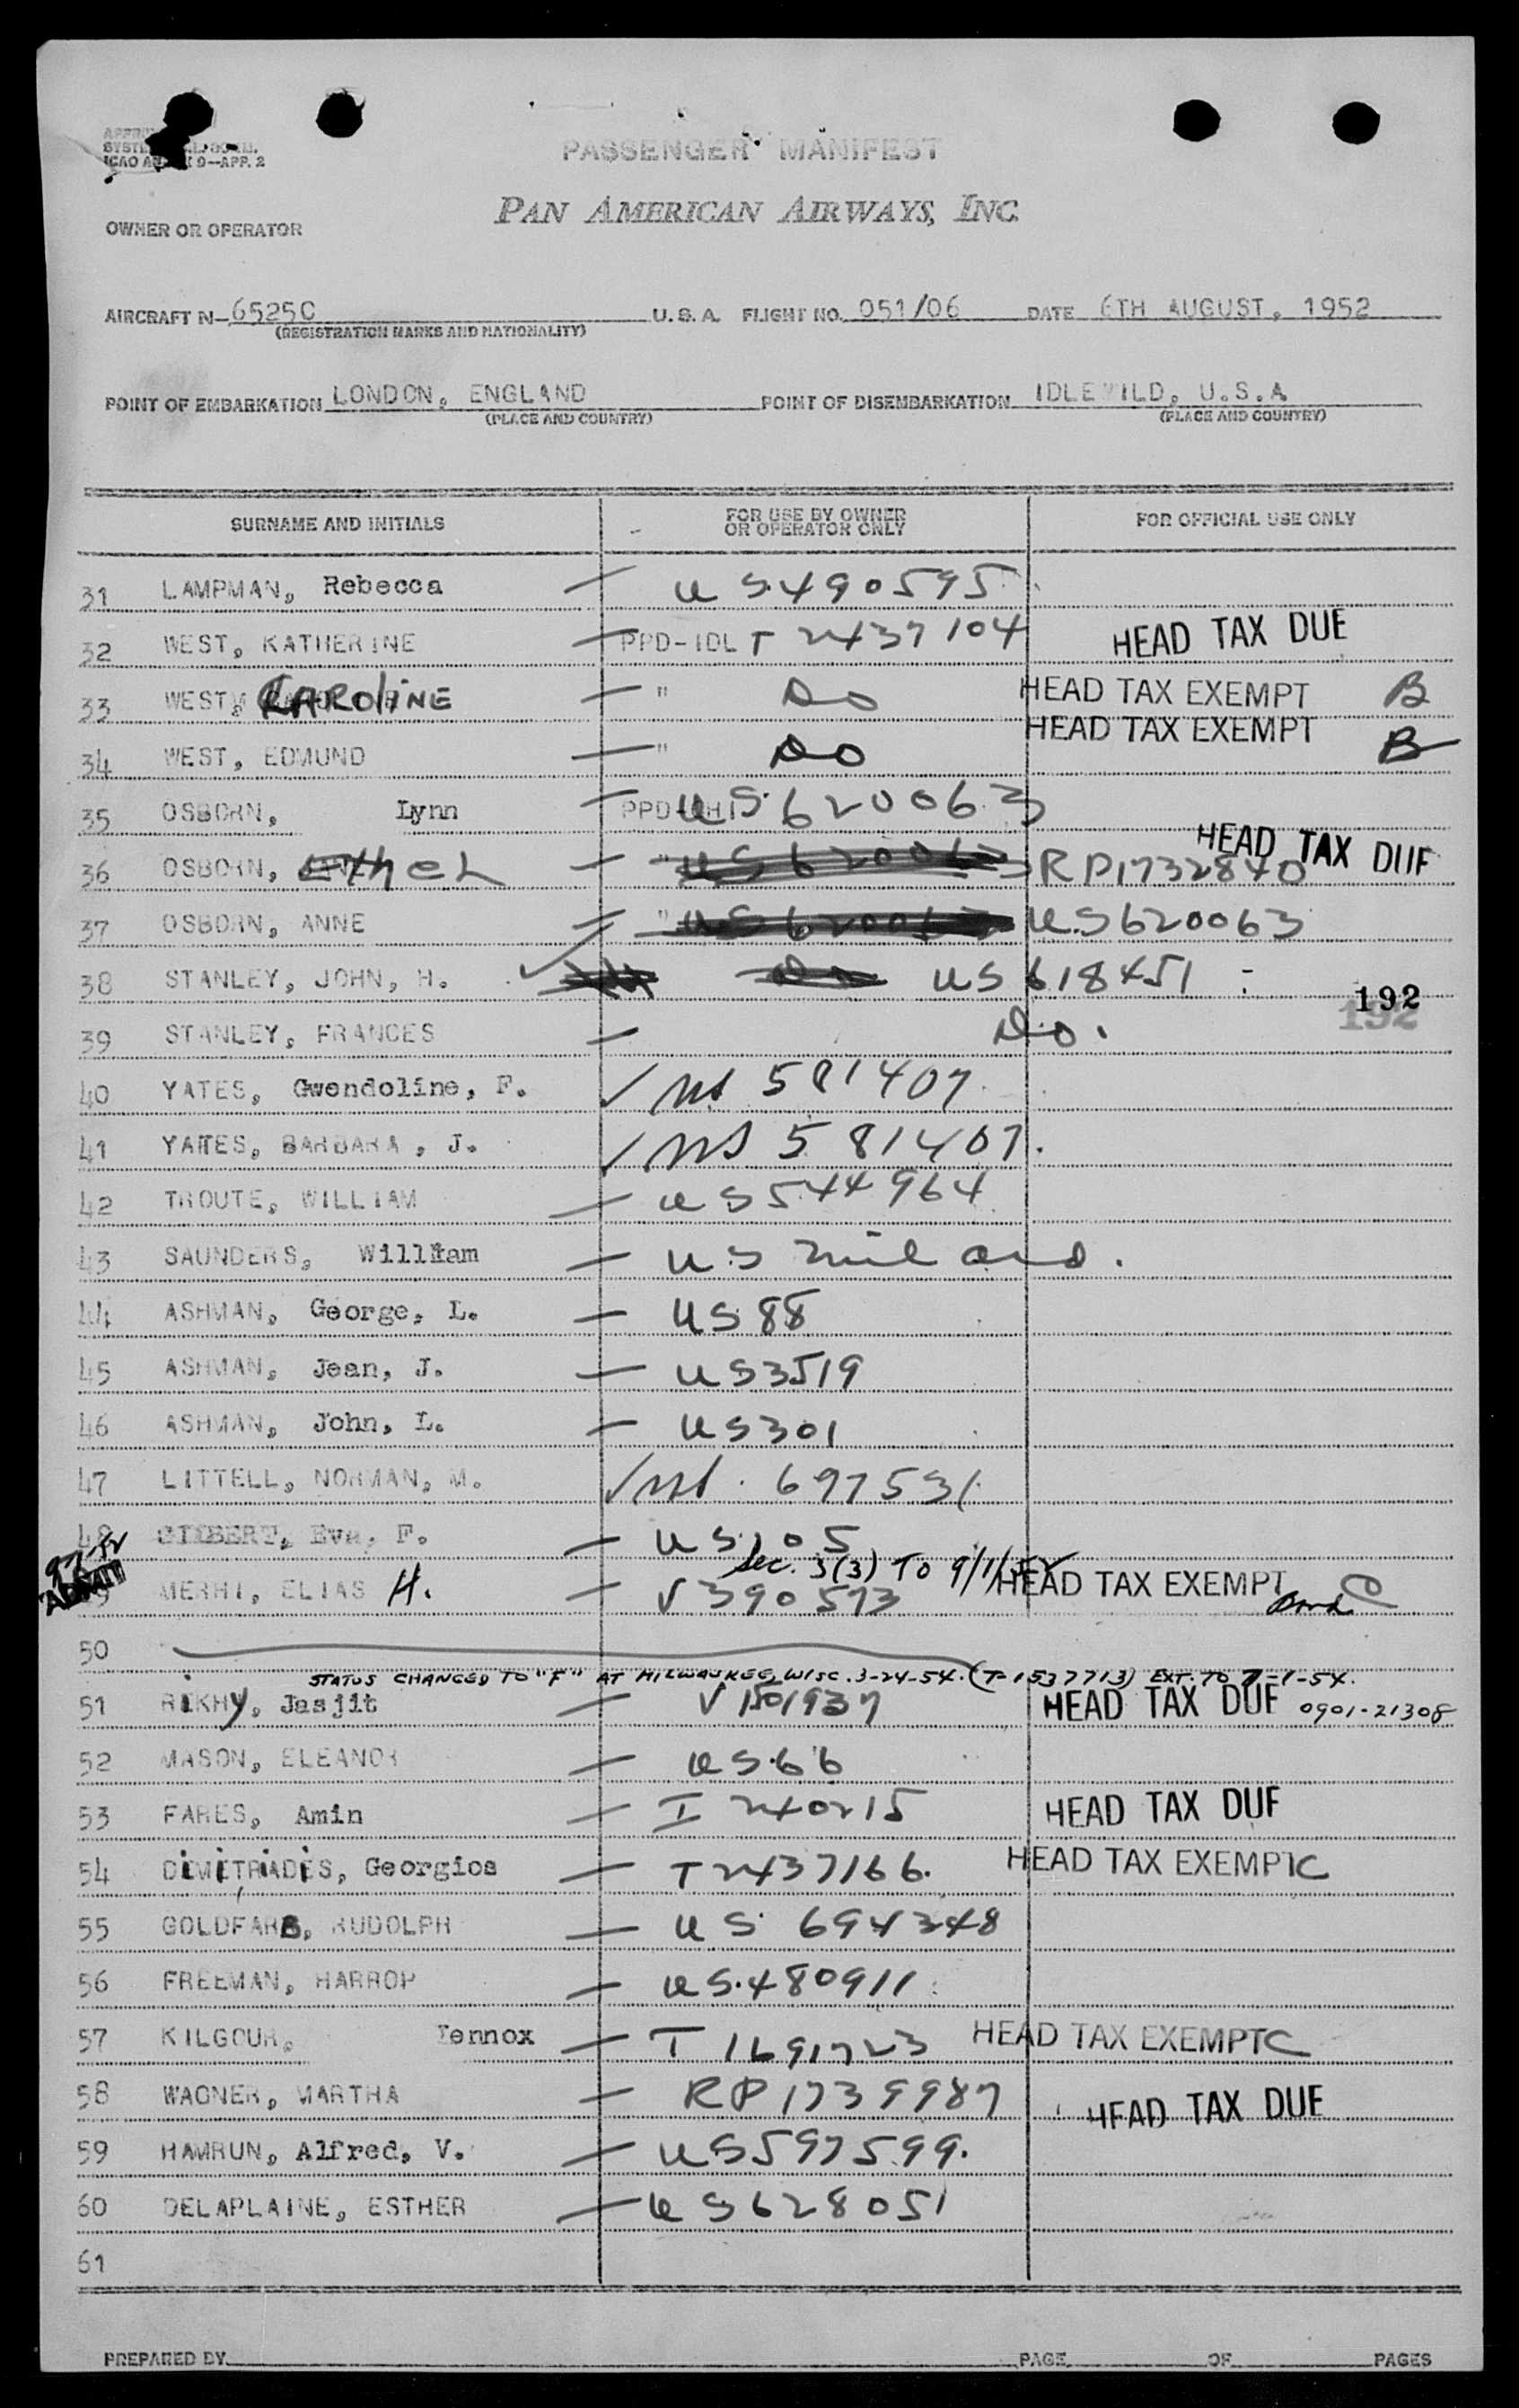 ICAO ANNEX 9—APP. 2
PASSENGER MANIFEST
PAN AMERICAN AIRWAYS, INC.
OWNER OR OPERATOR
AIRCRAFT N- 6525C U. S. A. FLIGHT NO. 051/06 DATE 6TH AUGUST, 1952
(REGISTRATION MARKS AND NATIONALITY)
POINT OF EMBARKATION LONDON, ENGLAND POINT OF DISEMBARKATION IDLEWILD, U.S.A
(PLACE AND COUNTRY) (PLACE AND COUNTRY)
SURNAME AND INITIALS FOR USE BY OWNER OR OPERATOR ONLY FOR OFFICIAL USE ONLY
31 LAMPMAN, Rebecca — US 490595
32 WEST, KATHERINE — PPD-IDL T 2437104 HEAD TAX DUE
33 WEST, KAROLINE — " Do HEAD TAX EXEMPT B
34 WEST, EDMUND — " Do HEAD TAX EXEMPT B
35 OSBORN, Lynn — US 620063
36 OSBORN, EtheL — " US 620063 RP1732840 HEAD TAX DUE
37 OSBORN, ANNE — " US 620063 US 620063
38 STANLEY, JOHN, H. ✓ Do US 618451
39 STANLEY, FRANCES — Do.
192
40 YATES, Gwendoline, F. ✓ US 581407
41 YATES, BARBARA, J. ✓ US 581407.
42 TROUTE, WILLIAM — US 544964
43 SAUNDERS, William — US mil ord.
44 ASHMAN, George, L. — US 88
45 ASHMAN, Jean, J. — US 3519
46 ASHMAN, John, L. — US 301
47 LITTELL, NORMAN, M. ✓ US 697531
48 GILBERT, Eva, F. — US 105
Sec. 3(3) TO 9/1/52
MERHI, ELIAS H. — V 390573 HEAD TAX EXEMPT C
50
STATUS CHANGED TO "F" AT MILWAUKEE, WISC. 3-24-54. (T-1537713) EXT. TO 7-1-54.
51 RIKHY, Jasjit — V 1501937 HEAD TAX DUE 0901-21308
52 MASON, ELEANOR — US 66
53 FARES, Amin — I 240215 HEAD TAX DUE
54 DIMITRIADIS, Georgios — T 2437166. HEAD TAX EXEMPT C
55 GOLDFARB, RUDOLPH — US 694348
56 FREEMAN, HARROP — US 480911
57 KILGOUR, Lennox — T 1691723 HEAD TAX EXEMPT C
58 WAGNER, MARTHA — RP 1739987 HEAD TAX DUE
59 HAMRUN, Alfred, V. — US 597599.
60 DELAPLAINE, ESTHER — US 628051
61
PREPARED BY PAGE OF PAGES